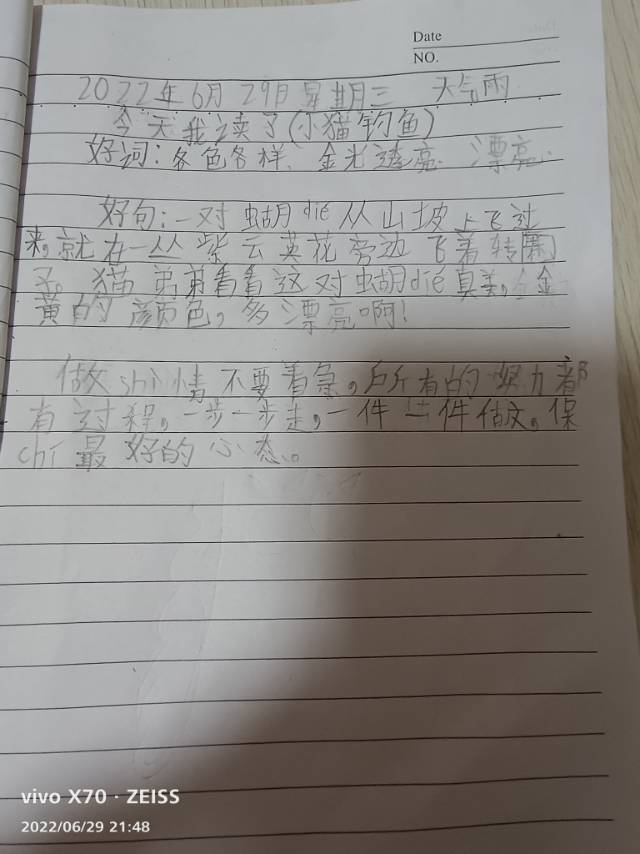 Date
NO.
2022年6月29日星期三 天气雨
今天我读了(小猫钓鱼)
好词:各色各样、金光透亮、漂亮.
好句:一对蝴dié从山坡上飞过
来,就在一丛紫云英花旁边飞着转圈
子。猫弟弟看看这对蝴dié真美,金金
黄的颜色,多漂亮啊!
做shì情不要着急,所有的努力都
有过程,一步一步走,一件一件做,保
chí最好的心态。
vivo X70 · ZEISS
2022/06/29 21:48